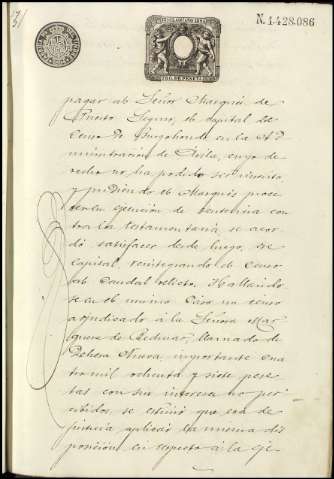 N.1.428.086
pagar al Señor Marqués de
Puerto Seguro, el capital de
censo de Burgohondo en la Ad
ministracion de Avila, cuyo de
recho no ha podido ser
y pudiendo el Marqués proce
der en ejecucion de sentencia con
tra la testamentaria, se acor
dó satisfacer desde luego, ese
capital, reintegrando el censo
al caudal relicto. Hallando
se en el mismo caso un censo
adjudicado á la Señora Mar
quesa de Bedmar, llamado de
Dehesa Nueva importante cua
tro mil ochenta y siete pese
tas con sus intereses no per
cibidos, se estimó que era de
justicia aplicar la misma dis
posicion en respecto á la eje-